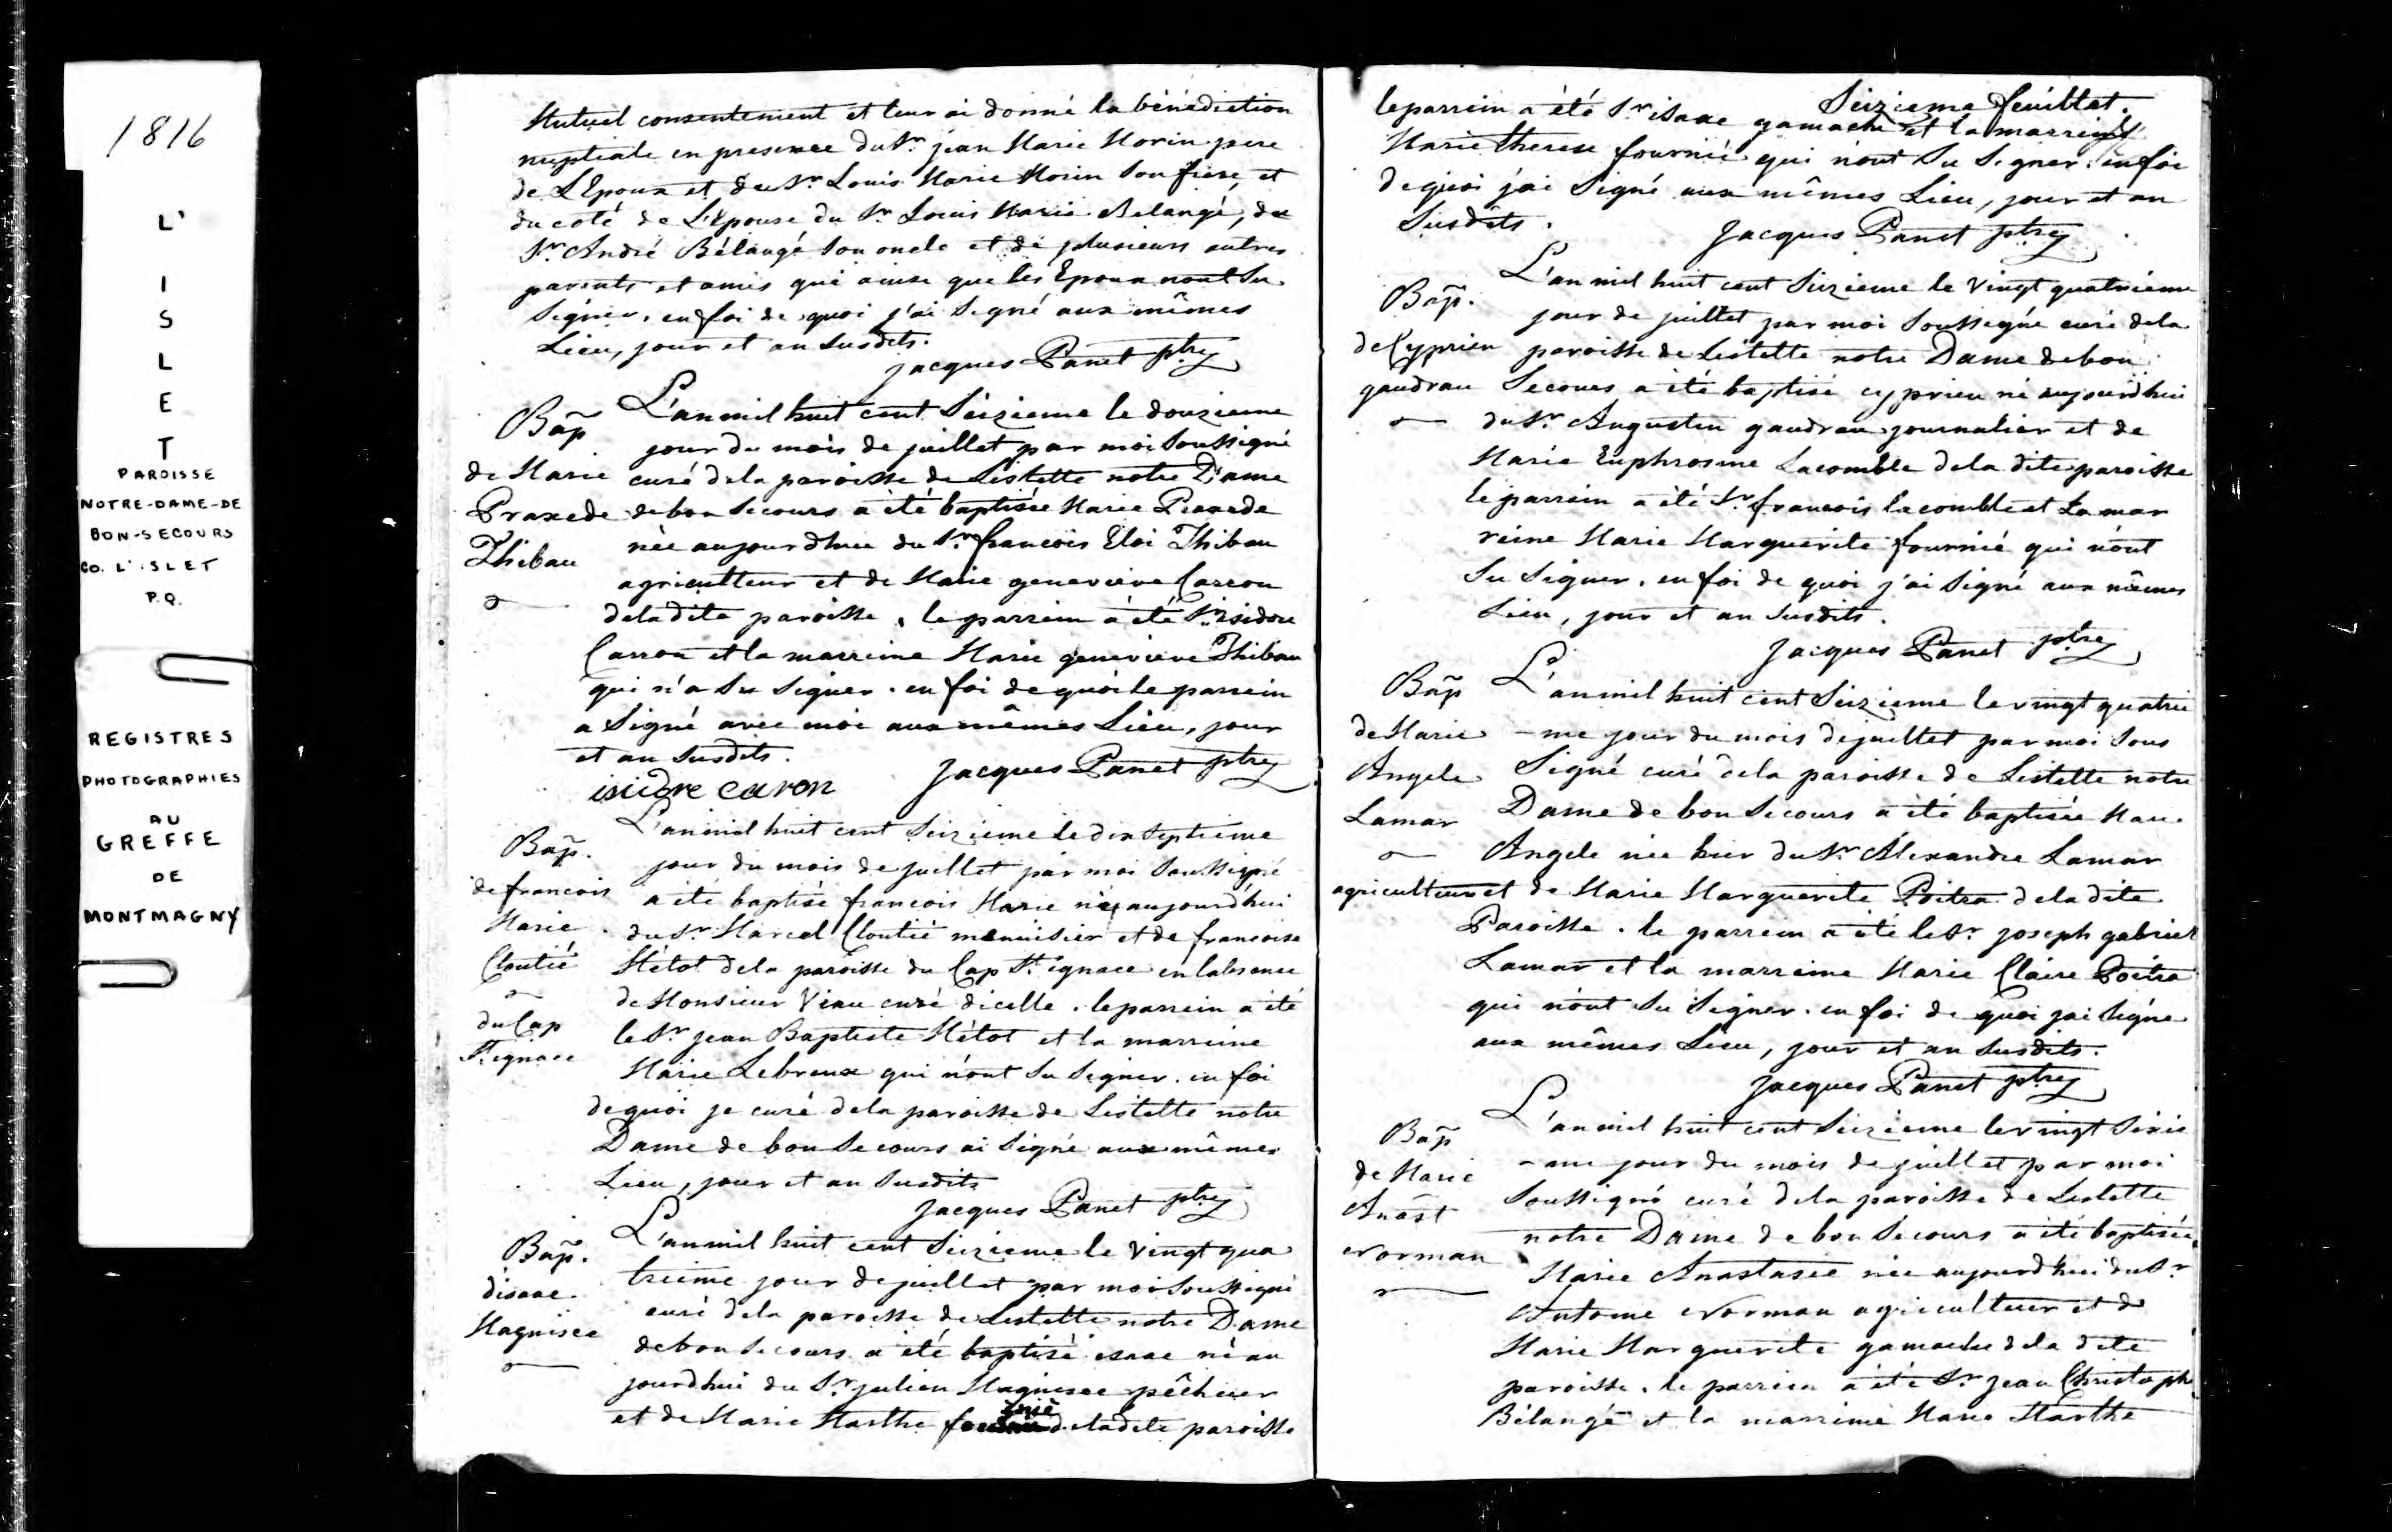 1816
L'
I
S
L
E
T
PAROISSE
NOTRE-DAME-DE
BON-SECOURS
CO. L'ISLET
P.Q.
REGISTRES
PHOTOGRAPHIES
AU
GREFFE
DE
MONTMAGNY
Mutuel consentement et leur ai donné la bénédiction
nuptiale en presence du Sr. jean Marie Morin pere
de L'Epoux et du Sr. Louis Marie Morin son frere, et
du coté de L'Epouse du Sr Louis Marie Belangé, du
Sr. André Bélangé son oncle et de plusieurs autres
parents et amis qui ainsi que les Epoux nont Su
Signer. en foi de quoi j'ai Signé aux mêmes
Lieu, jour et an susdits.
jacques Panet ptre
Bap̃
de Marie
Praxede
Thibau
L'an mil huit cent Seizieme le douzieme
jour du mois de juillet par moi Soussigné
curé dela paroisse de Lislette notre Dame
de bon Secours a été baptisée Marie Praxede
née aujourdhui du Sr. francois Eloi Thibau
agriculteur et de Marie genevieve Carron
deladite paroisse. le parrein a été Sr. isidore
Carron et la marreine Marie genevieve Thibau
qui n'a Su Signer. en foi de quoi le parrein
a Signé avec moi aux mêmes Lieu, jour
et an susdits.
jacques Panet ptre
isidore caron
Bap̃.
de francois
Marie
Cloutié
du Cap
St. ignace
L'an mil huit cent Seizieme le dix Septieme
jour du mois de juillet par moi Soussigné
a été baptisé francois Marie né aujourdhui
du Sr. Marcel Cloutié menuisier et de francoise
Métot dela paroisse du Cap St. ignace en labsence
de Monsieur Viau curé dicelle. le parrein a été
le Sr. jean Baptiste Métot et la marreine
Marie Lebreux qui nont Su Signer. en foi
de quoi je curé dela paroisse de Lislette notre
Dame de bon Secours ai Signé aux mêmes
Lieu, jour et an Susdits
jacques Panet ptre
Bap̃.
disaac
L'an mil huit cent Seizieme le vingt qua
trieme jour de juillet par moi Soussigné
curé dela paroisse de Lislette notre Dame
de bon Secours a été baptisé isaac né au
jourdhui du Sr. julien pêcheur
et de Marie Marthe deladite paroisse
Seizieme feuillet.
le parrein a été Sr. isaac gamache et la marreine
Marie therese fournié qui nont Su Signer. en foi
de quoi j'ai Signé aux mêmes Lieu, jour et an
Susdits.
jacques Panet ptre
Bap̃.
de Cyprien
gaudrau
L'an mil huit cent Seizieme le vingt quatrieme
jour de juillet par moi Soussigné curé dela
paroisse de Lislette notre Dame de bon
Secours a été baptisé cyprien né aujourdhui
du Sr. Augustin gaudrau journalier et de
Marie Euphrosine Lacomble dela dite paroisse
le parrein a été Sr. francois lacomble et La mar
reine Marie Marguerite fournié qui nont
Su Signer. en foi de quoi j'ai Signé aux mêmes
Lieu, jour et an Susdits.
jacques Panet ptre
Bap̃
de Marie
Angele
Lamar
L'an mil huit cent Seizieme le vingt quatrie
-me jour du mois de juillet par moi Sous
Signé curé dela paroisse de Lislette notre
Dame de bon Secours a été baptisée Marie
Angele née hier du Sr. Alexandre Lamar
agriculteur et de Marie Marguerite Poitra deladite
Paroisse. le parrein a été le Sr. joseph gabriel
Lamar et la marreine Marie Claire Poitra
qui nont Su Signer. en foi de quoi jai Signé
aux mêmes Lieu, jour et an Susdits.
jacques Panet ptre
Bap̃
de Marie
Anast
Norman
L'an mil huit cent Seizieme le vingt Sixie
-me jour du mois de juillet par moi
Soussigné curé dela paroisse de Lislette
notre Dame de bon Secours a été baptisée
Marie Anastasie née aujourdhui du Sr
Antoine Norman agriculteur et de
Marie Marguerite gamache dela dite
paroisse. le parrein a été Sr. jean Christoph
Bélangé et la marreine Marie Marthe